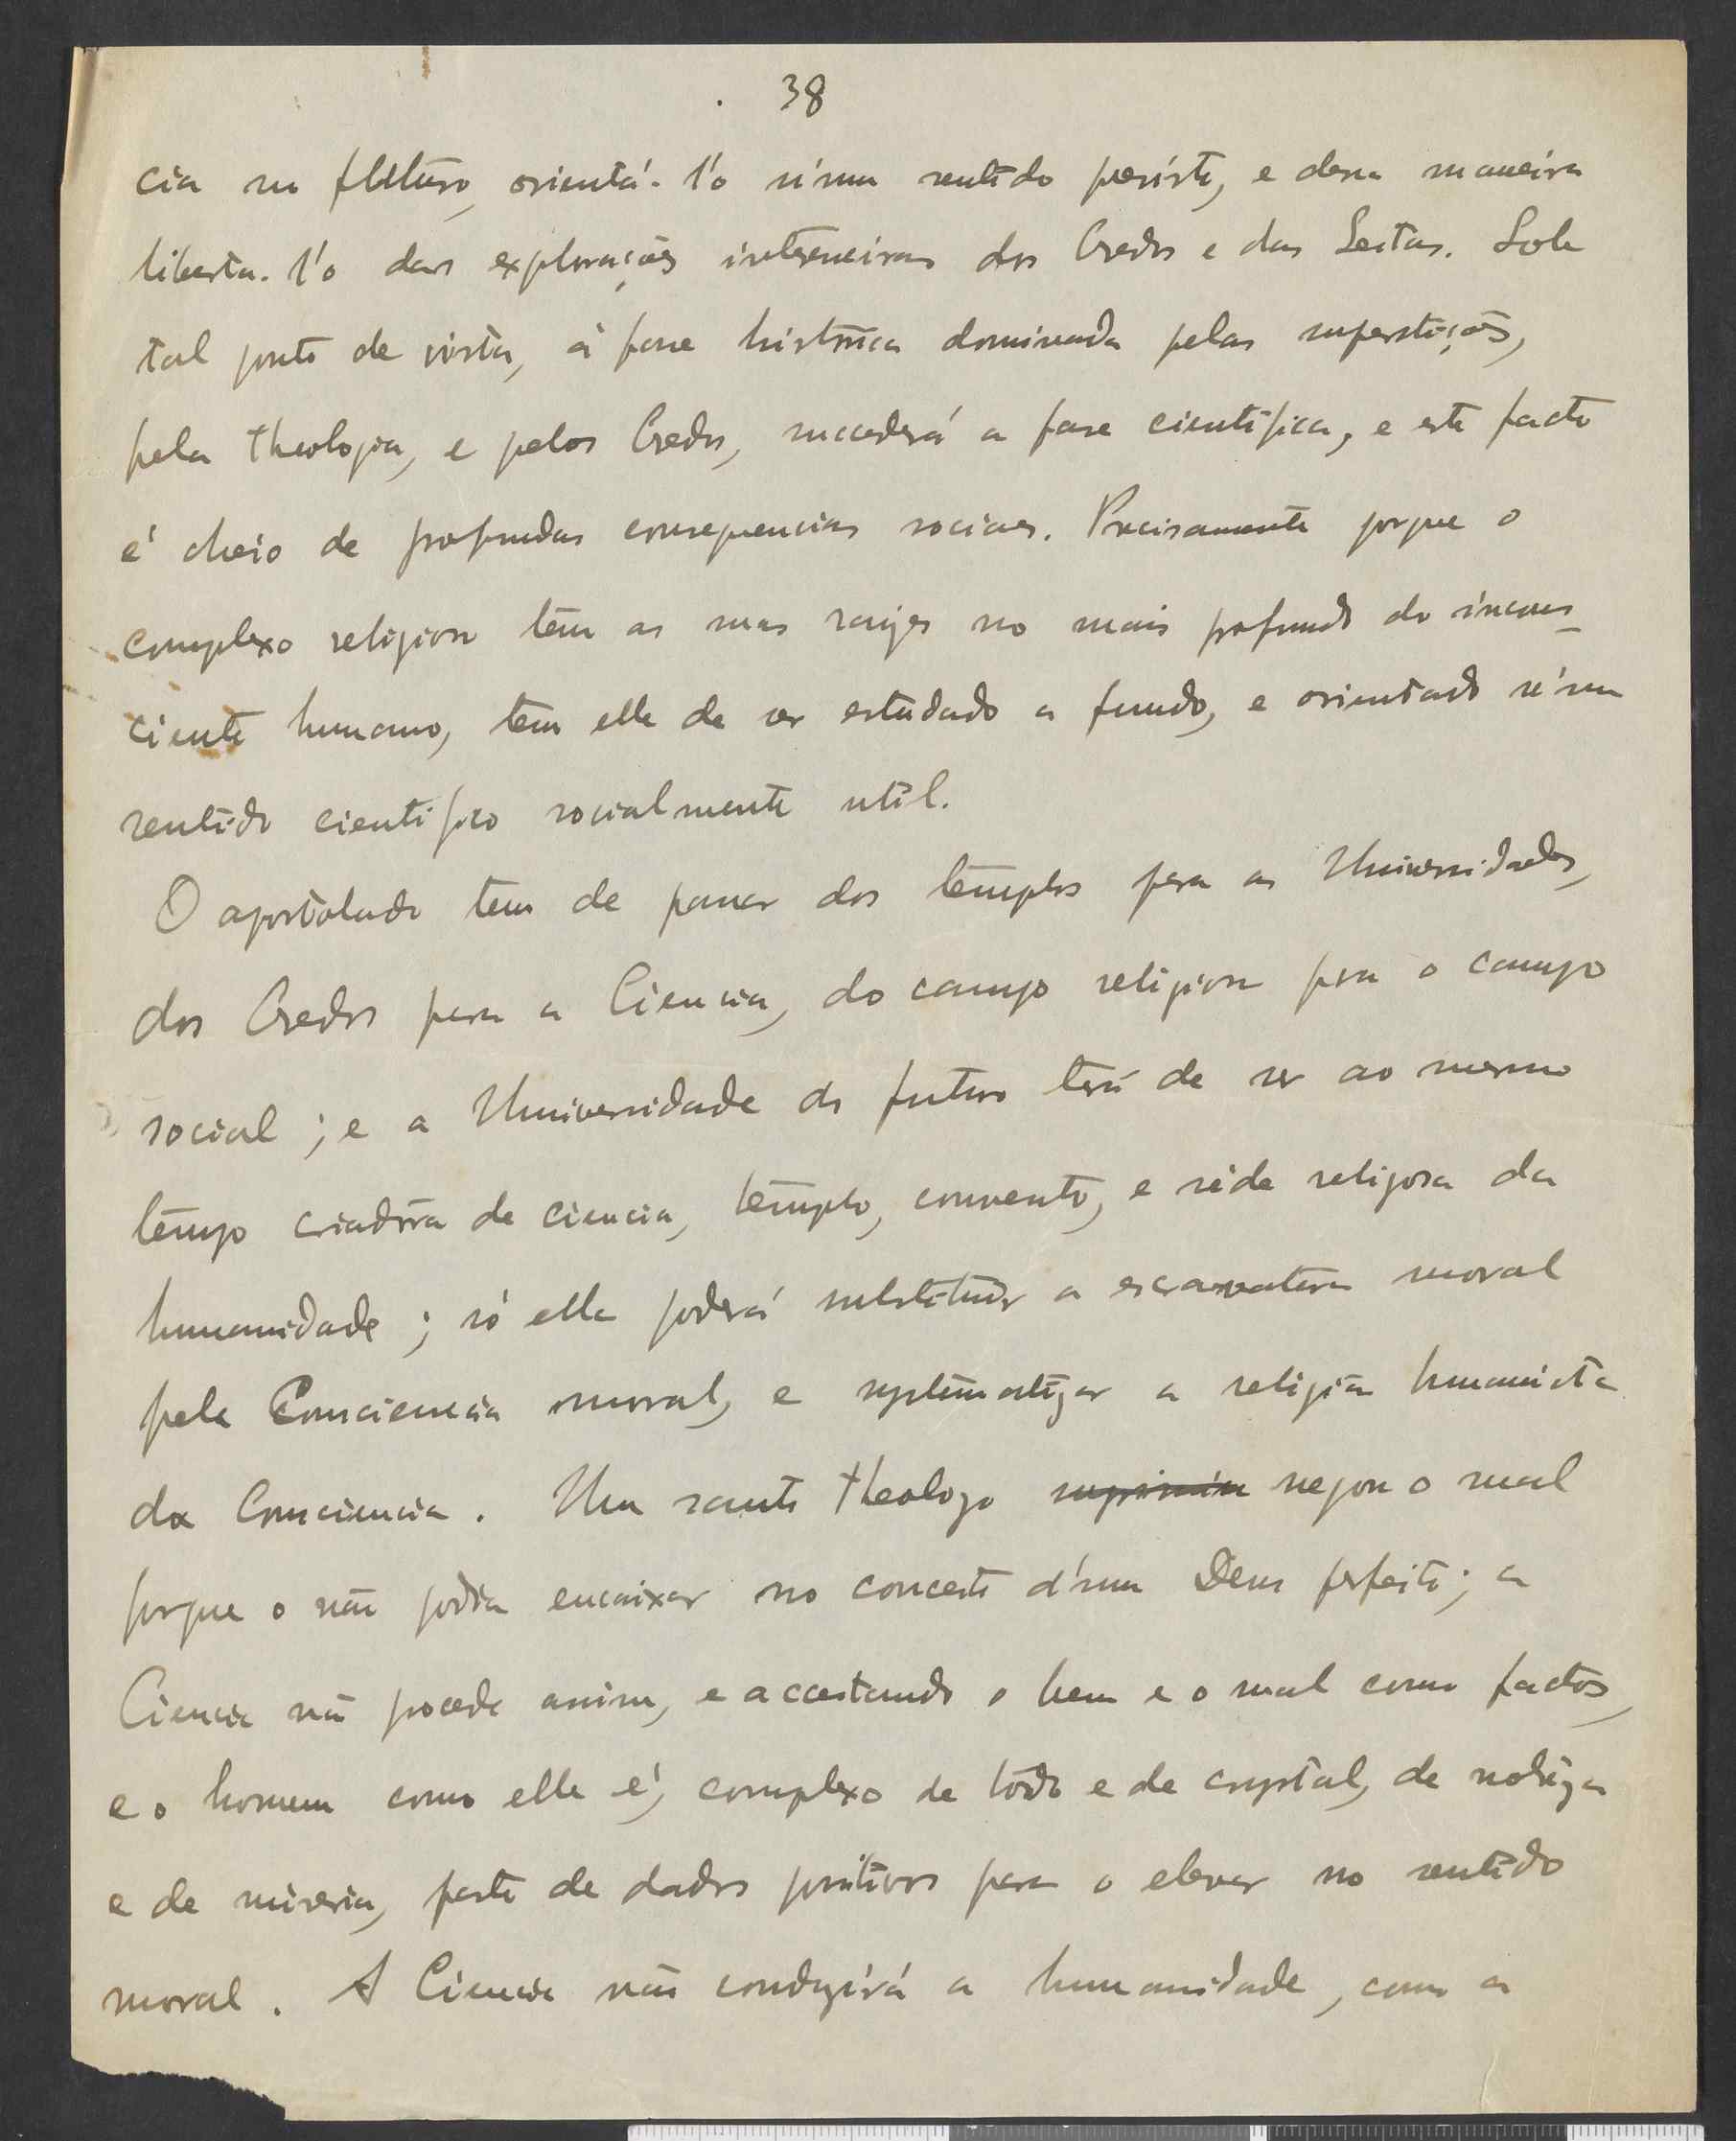 38
cia no futuro, orientá-l'o n'um sentido, e dessa maneira
liberta-l'o das explorações interesseiras dos Credos e das Seitas. Sob
tal ponto de vista, á fase historica dominada pelas superstições,
pela theologia, e pelos Credos, succederá a fase cientifica, e este facto
é cheio de profundas consequencias sociaes. Precisamente porque o
complexo religioso tem as suas raizes no mais profundo do incons-
ciente humano, tem elle de ser estudado a fundo, e orientado n'um
sentido cientifico socialmente util.
O apostolado tem de passar dos templos para as Universidades,
dos Credos para a Ciencia, do campo religioso para o campo
social; e a Universidade do futuro terá de ser ao mesmo
tempo criadôra de ciencia, templo, convento, e séde religiosa da
humanidade; só ella poderá substituir a escravatura moral
pela Consciencia moral, e systematizar a religião humanista
da Consciencia. Um santo theologo negou o mal
porque o não podia encaixar no conceito d'um Deus perfeito; a
Ciencia não procede assim, e acceitando o bem e o mal como factos,
e o homem como elle é, complexo de lôdo e de crystal, de nobreza
e de miseria, parte de dados positivos para o elevar no sentido
moral. A Ciencia não conduzirá a humanidade, com a